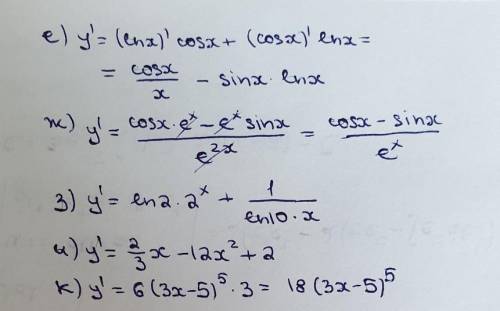 е) y' = (lnx)' cosx + (cosx)' lnx =
= cosx/x - sinx · lnx
ж) y' = (cosx · e^x - e^x sinx)/e^2x = (cosx - sinx)/e^x
з) y' = ln2 · 2^x + 1/(ln10 · x)
и) y' = 2/3 x - 12x² + 2
к) y' = 6(3x-5)^5 · 3 = 18(3x-5)^5